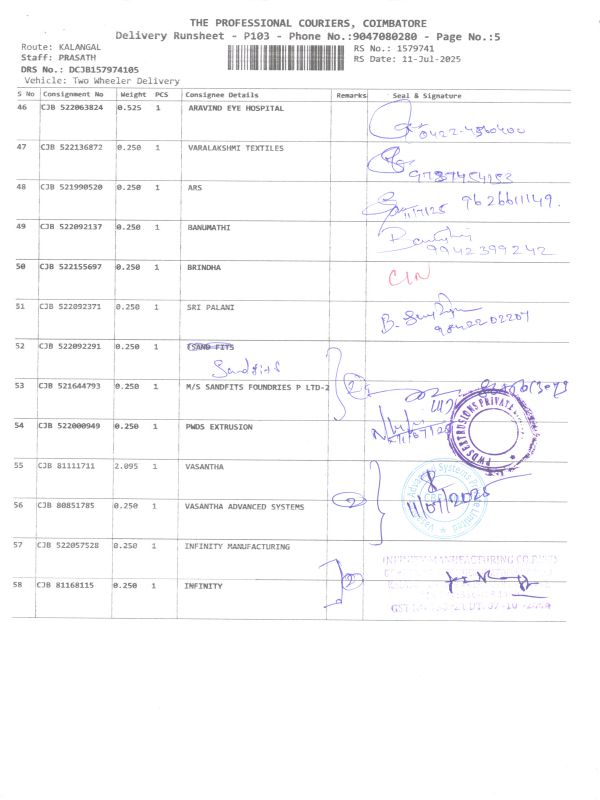 THE PROFESSIONAL COURIERS, COIMBATORE
Delivery Runsheet - P103 - Phone No.:9047080280 - Page No.:5
Route: KALANGAL
RS No.: 1579741
Staff: PRASATH
RS Date: 11-Jul-2025
DRS No.: DCJB157974105
Vehicle: Two Wheeler Delivery
S No Consignment No Weight PCS Consignee Details Remarks Seal & Signature
46 CJB 522063824 0.525 1 ARAVIND EYE HOSPITAL
0422-4360400
47 CJB 522136872 0.250 1 VARALAKSHMI TEXTILES
9787454153
48 CJB 521990520 0.250 1 ARS
11/7/25 9626611149.
49 CJB 522092137 0.250 1 BANUMATHI
9942399242
50 CJB 522155697 0.250 1 BRINDHA
51 CJB 522092371 0.250 1 SRI PALANI
9842202207
52 CJB 522092291 0.250 1 TSAND FITS
Sandfits
53 CJB 521644793 0.250 1 M/S SANDFITS FOUNDRIES P LTD-2
2
54 CJB 522000949 0.250 1 PWDS EXTRUSION
PWDS EXTRUSIONS PRIVATE
55 CJB 81111711 2.095 1 VASANTHA
56 CJB 80851785 0.250 1 VASANTHA ADVANCED SYSTEMS
2
Vasantha Advanced Systems Private Limited
11/07/2025
57 CJB 522057528 0.250 1 INFINITY MANUFACTURING
INFINITY MANUFACTURING CO.
58 CJB 81168115 0.250 1 INFINITY
2